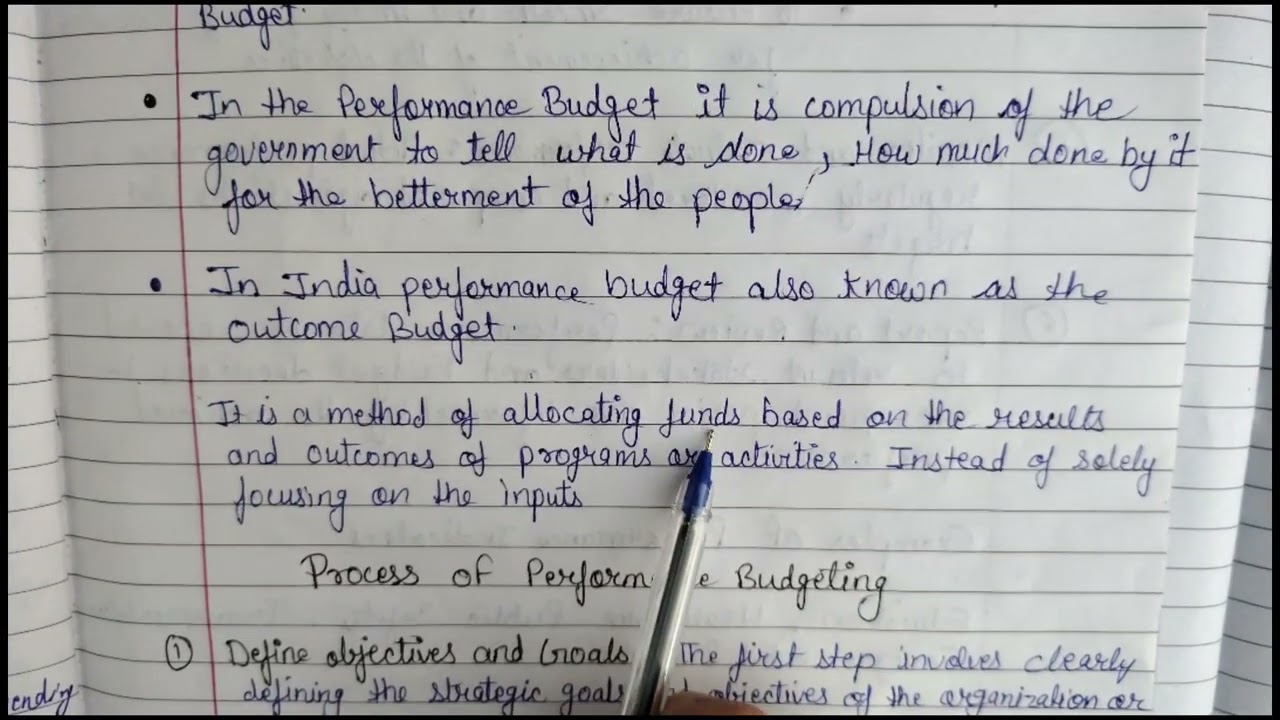 Budget.
• In the Performance Budget it is compulsion of the
government to tell what is done, How much done by it
for the betterment of the people,
• In India performance budget also known as the
outcome Budget.
It is a method of allocating funds based on the results
and outcomes of programs or activities. Instead of solely
focusing on the inputs
Process of Budgeting
① Define objectives and Goals The first step involves clearly
defining the strategic goals objectives of the organization or